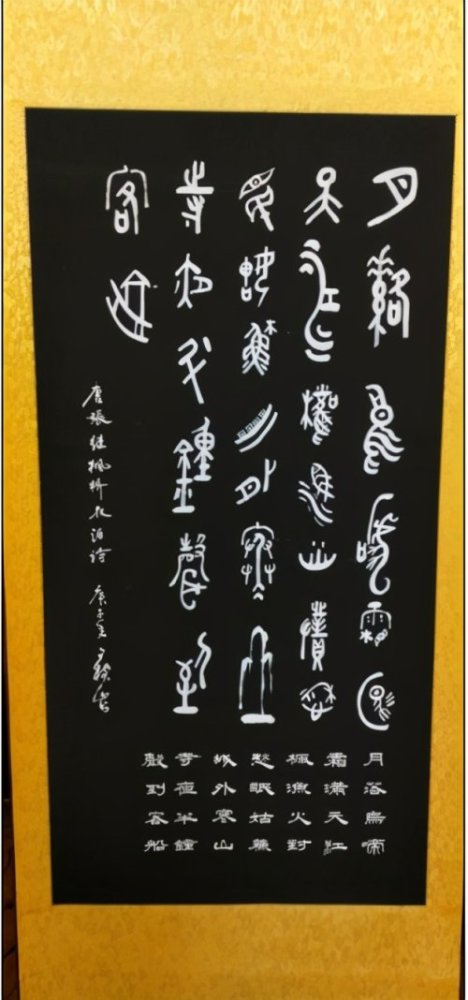 月落烏啼霜滿
天江楓漁火對愁
眠姑蘇城外寒山
寺夜半鐘聲到
客船
唐張继楓桥夜泊诗 庚子年
月落烏啼
霜滿天江
楓漁火對
愁眠姑蘇
城外寒山
寺夜半鐘
聲到客船